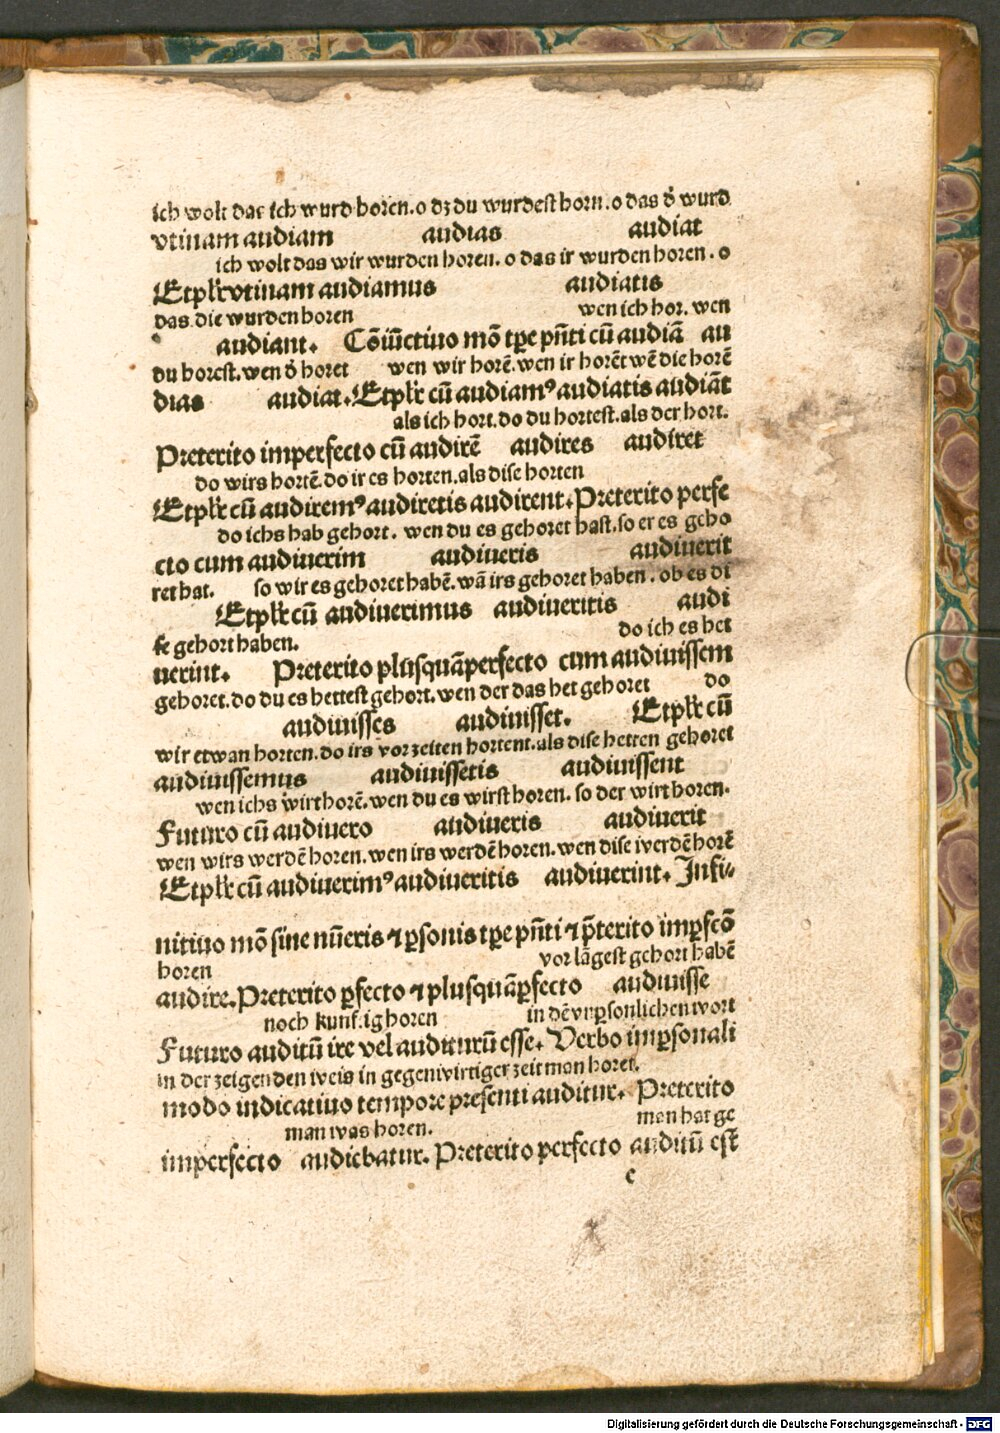 ich wolt das ich wurd horen.o dz du wurdest horn.o das d̕ wurd
vtinam audiam audias audiat
ich wolt das wir wurden horen. o das ir wurden horen . o
Etplr̄ vtinam audiamus audiatis
das die wurden horen wen ich hor. wen
audiant. Cōiūctiuo mō tꝑe pn̄ti cū audiā au
du horest.wen d̕ horet wen wir horē.wen ir horēt wē die horē
dias audiat.Etplr̄ cū audiamꝰ audiatis audiāt
als ich hort.do du hortest.als der hort.
Preterito imperfecto cū audirē audires audiret
do wirs hortē.do ir es horten.als dise horten
Etplr̄ cū audiremꝰ audiretis audirent.Preterito perfe
do ichs hab gehort. wen du es gehoret hast.so er es geho
cto cum audiuerim audiueris audiuerit
ret hat. so wir es gehoret habē.wā irs gehoret haben . ob es di
Etplr̄ cū audiuerimus audiueritis audi
se gehort haben. do ich es het
uerint. Preterito plusquāperfecto cum audiuissem
gehoret.do du es hettest gehort.wen der das het gehoret do
audiuisses audiuisset. Etplr̄ cū
wir etwan horten.do irs vor zeiten hortent.als dise hetten gehoret
audiuissemus audiuissetis audiuissent
wen ichs wirt horē.wen du es wirst horen. so der wirt horen.
Futuro cū audiuero audiueris audiuerit
wen wirs werdē horen.wen irs werdē horen.wen dise werdē horē
Etplr̄ cū audiuerimꝰ audiueritis audiuerint. Infi⸗
nitiuo mō sine nūeris ⁊ ꝑsonis tꝑe pn̄ti ⁊ p̄terito imꝑfcō
horen vor lāgest gehort habē
audire.Preterito ꝑfecto ⁊ plusquāꝑfecto audiuisse
noch kunf.ig horen in dē vnꝑsonlichen wort
Futuro auditū ire vel auditurū esse. Verbo imꝑsonali
in der zeigenden weis in gegenwirtiger zeit man horet.
modo indicatiuo tempore presenti auditur. Preterito
man was horen. man hat ge
imperfecto audiebatur. Preterito perfecto auditū est̄
c
Digitalisierung gefördert durch die Deutsche Forschungsgemeinschaft - DFG